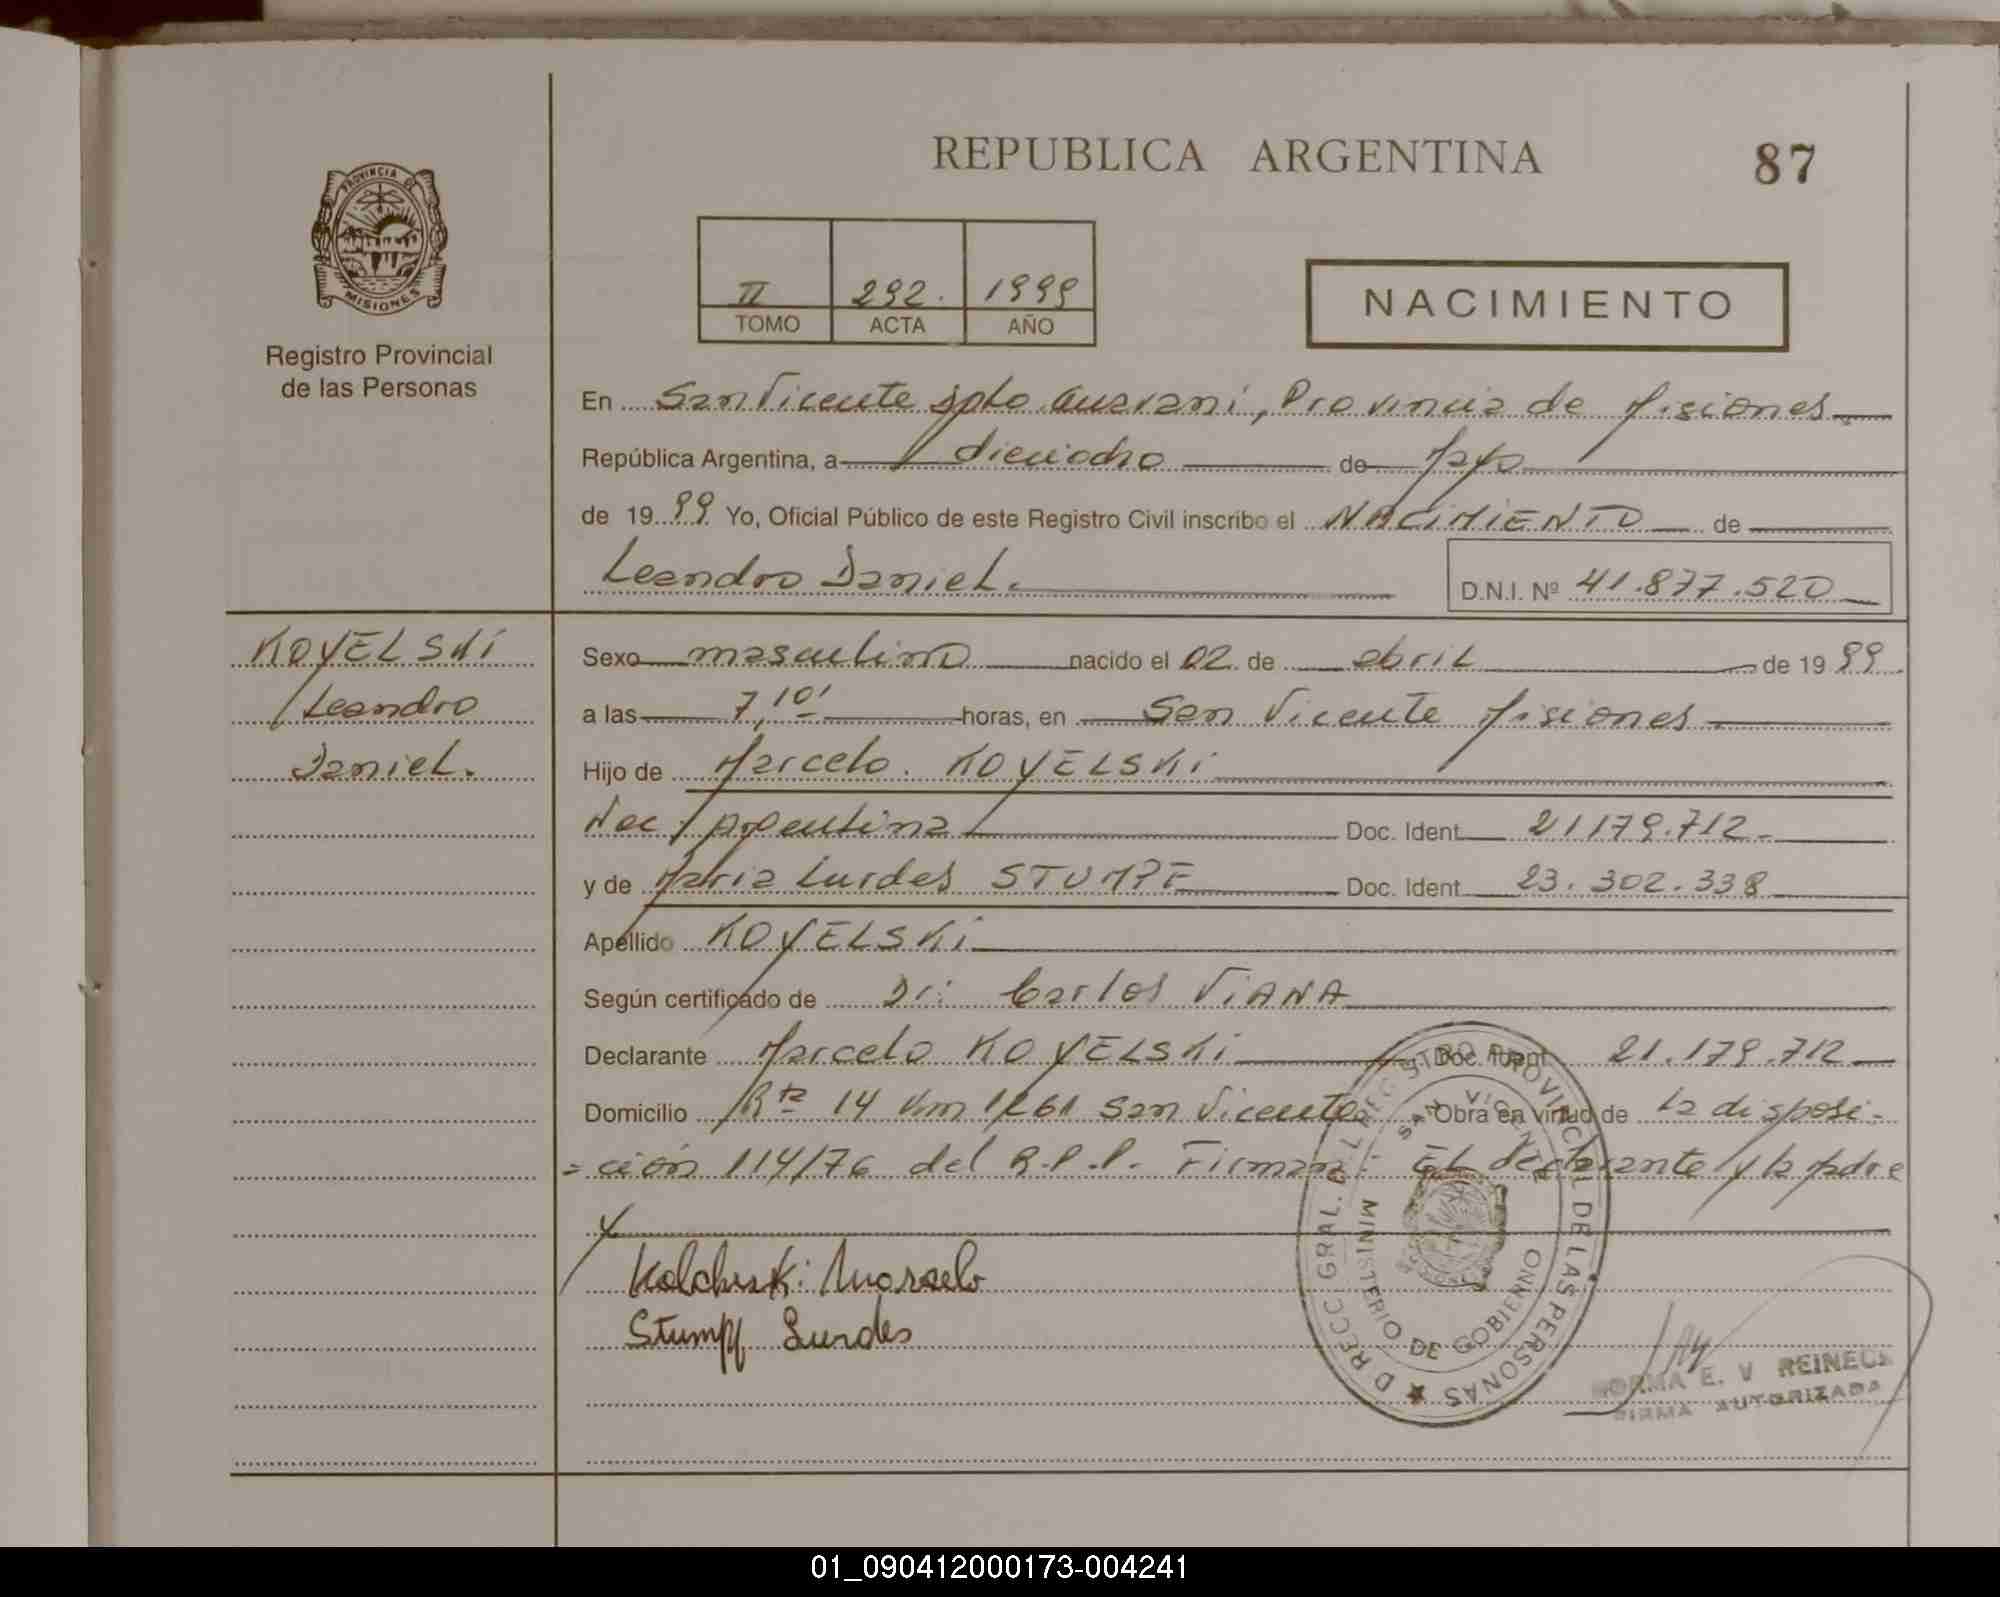 REPUBLICA ARGENTINA
87
PROVINCIA DE
MISIONES
Registro Provincial
de las Personas
II 292. 1999
TOMO ACTA AÑO
NACIMIENTO
En San Vicente Dpto Guarani, Provincia de Misiones
República Argentina, a dieciocho de Mayo
de 1999 Yo, Oficial Público de este Registro Civil inscribo el NACIMIENTO de
Leandro Daniel.
D.N.I. Nº 41.877.520
KOYELSKI
Leandro
Daniel.
Sexo masculino nacido el 02 de abril de 1999
a las 7,10' horas, en San Vicente Misiones
Hijo de Marcelo. KOYELSKI
Nac. Argentina Doc. Ident 21179.712-
y de Maria Lurdes STUMPF Doc. Ident 23.302.338
Apellido KOYELSKI
Según certificado de Dr: Carlos VIANA
Declarante Marcelo KOYELSKI Doc. Ident 21.179.712
Domicilio Rta 14 Km 1261 San Vicente Obra en virtud de la disposi-
=ción 114/76 del R.P.P. Firman: El declarante y la Madre
Marcelo
Stumpf Lurdes
DIRECC. GRAL. DEL REGISTRO PROVINCIAL DE LAS PERSONAS
SAN VICENTE
MINISTERIO DE GOBIERNO
NORMA E. V REINECK
FIRMA AUTORIZADA
01_090412000173-004241